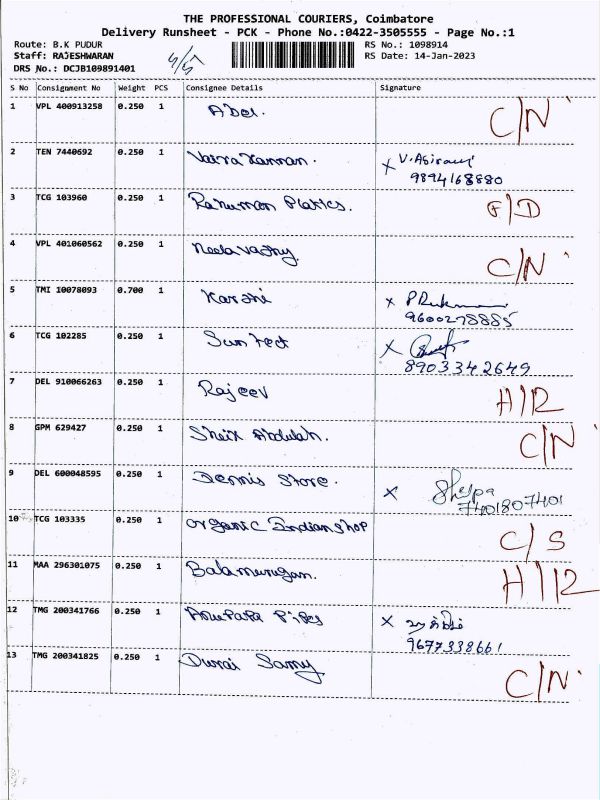 THE PROFESSIONAL COURIERS, Coimbatore
Delivery Runsheet - PCK - Phone No.:0422-3505555 - Page No.:1
Route: B.K PUDUR RS No.: 1098914
Staff: RAJESHWARAN RS Date: 14-Jan-2023
DRS No.: DCJB109891401
S No Consignment No Weight PCS Consignee Details Signature
1 VPL 400913258 0.250 1 Abel. C/N
2 TEN 7440692 0.250 1 Vairakannan. x
9894168880
3 TCG 103960 0.250 1 F/D
4 VPL 401060562 0.250 1 C/N
5 TMI 10078093 0.700 1 x
9600278885
6 TCG 102285 0.250 1 x
8903342649
7 DEL 910066263 0.250 1 Rajeev H/R
8 GPM 629427 0.250 1 Sheik Abdulah. C/N
9 DEL 600048595 0.250 1 Dennis Store. x Shilpa
7401807401
10 TCG 103335 0.250 1 Organic Indian shop C/S
11 MAA 296301075 0.250 1 Balamurugan. H/R
12 TMG 200341766 0.250 1 x
9677338661
13 TMG 200341825 0.250 1 Durai Samy C/N